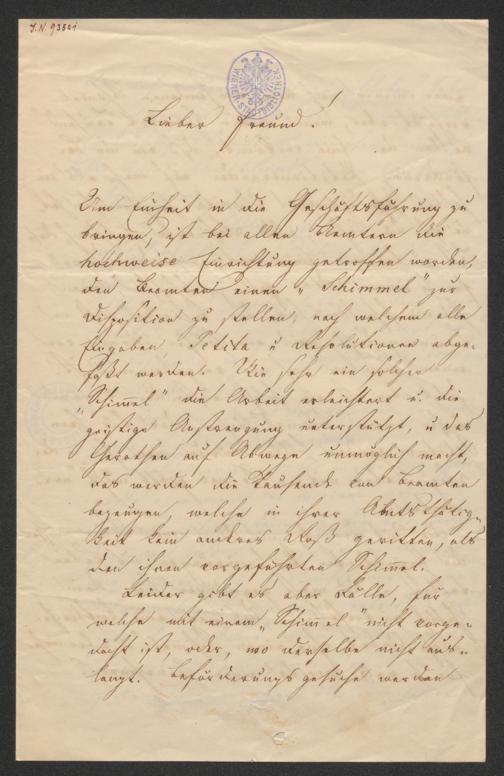 J.N. 93521
WIENER STADTBIBLIOTHEK
Lieber Freund!
Um Einheit in die Geschäftsführung zu
bringen, ist bei allen Aemtern die
hochweise Einrichtung getroffen worden,
den Beamten einen „Schimmel" zur
Disposition zu stellen, nach welchem alle
Eingaben Petita u Resolutionen abge-
faßt werden. Wie sehr ein solcher
„Schimel" die Arbeit erleichtert u. die
geistige Anstrengung unterstützt, u das
Gerathen auf Abwege unmöglich macht,
das werden die Tausende von Beamten
bezeugen, welche in ihrer Amtsthätig-
keit kein anderes Roß geritten, als
den ihnen vorgeführten Schimel.
Leider gibt es aber Fälle, für
welche mit einem „Schimel" nicht vorge-
dacht ist, oder, wo derselbe nicht aus-
langt. Beförderungsgesuche werden